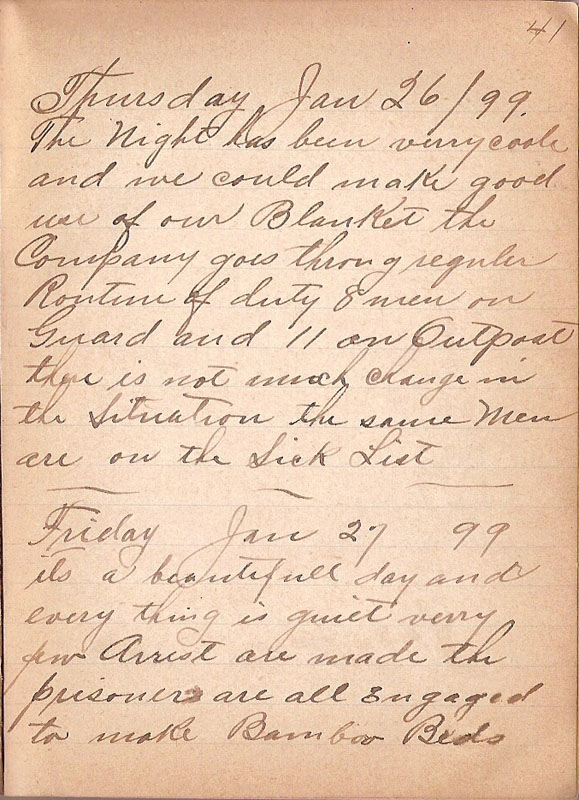 41
Thursday Jan 26/99.
The Night has been verry coole
and we could make good
use of our Blanket the
Company goes throug reguler
Routine of duty 8 men on
Guard and 11 on Outpost
there is not much change in
the Situation the same Men
are on the Sick List
Friday Jan 27 99
its a beautifull day and
every thing is quiet verry
few Arrest are made the
prisoners are all Engaged
to make Bamboo Beds